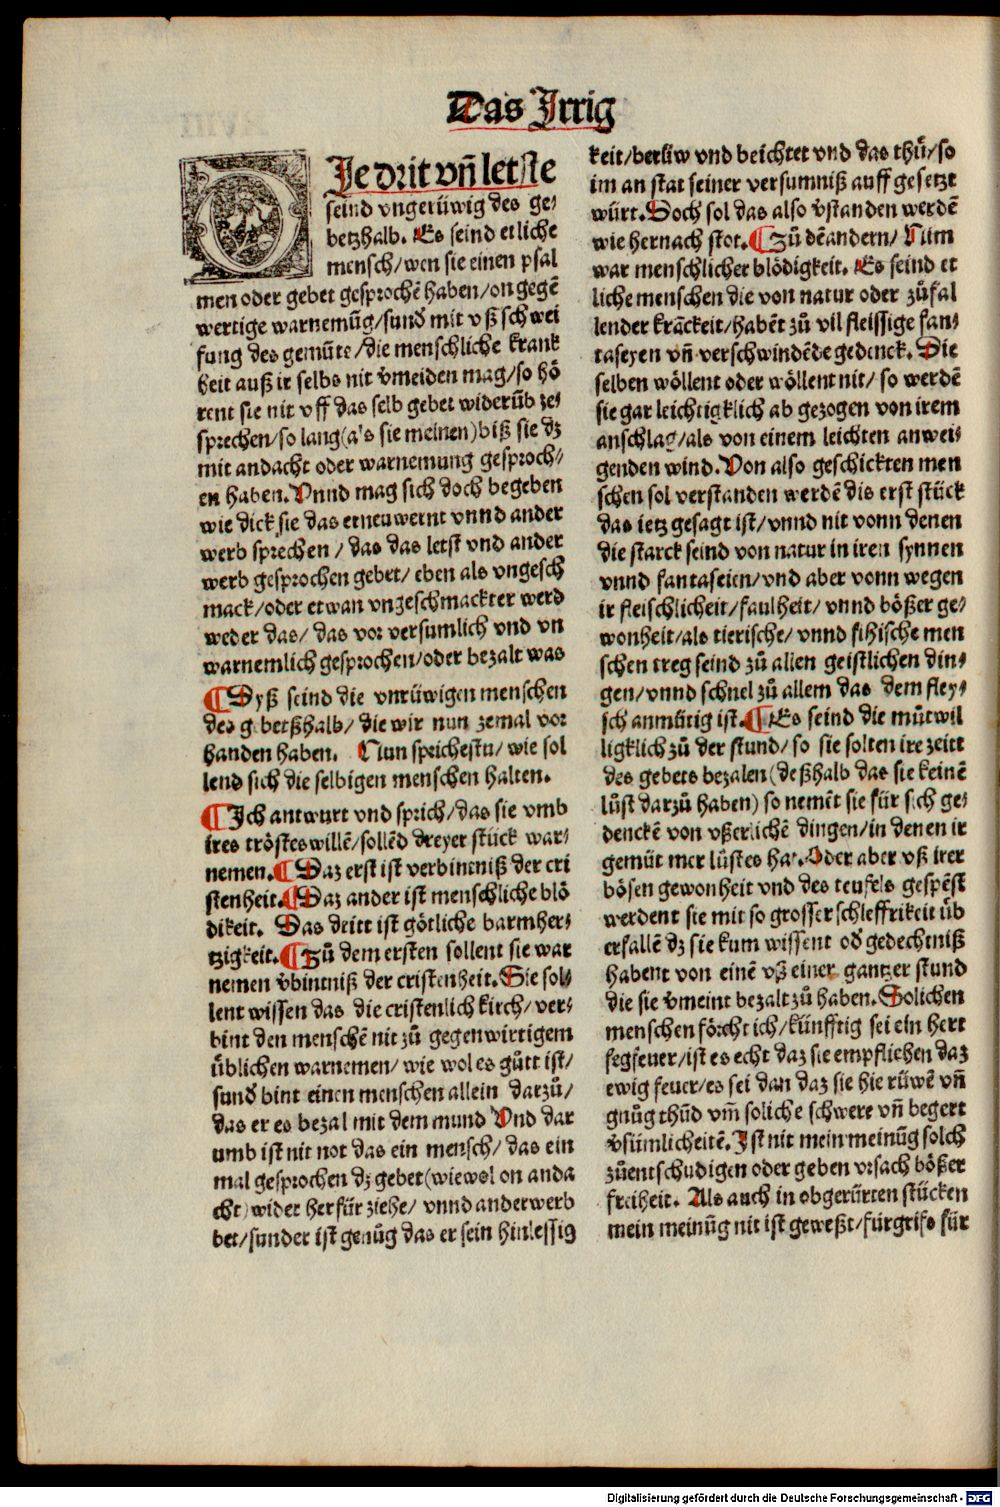 Das Jrrig
DJe drit vñ letste
seind vngerüwig des ge⸗
betzhalb. Es seind etliche
mensch/wen sie einen psal
men oder gebet gesprochē haben/on gegē
wertige warnemũg/sund̛ mit vß schwei
fung des gemüte/die menschliche krank
heit auß ir selbs nit v̄meiden mag/so hö
rent sie nit vff das selb gebet widerūb ze⸗
sprechen/so lang(als sie meinen)biß sie dz
mit andacht oder warnemung gesproch⸗/
en haben. Vnnd mag sich doch begeben
wie dick sie das erneuwernt vnnd ander
werb sprechen / das das letst vnd ander
werb gesprochen gebet/ eben als vngesch
mack/oder etwan vnzeschmackter werd
weder das/ das vor versumlich vnd vn
warnemlich gesprochen/oder bezalt was
¶Dyß seind die vnrüwigen menschen
des g betßhalb/ die wir nun zemal vor
handen haben. Nun sprichestu/ wie sol
lend sich die selbigen menschen halten.
¶Jch antwurt vnd sprich/das sie vmb
ires tröstes willē/sollēd dreyer stück war⸗
nemen.¶Daz erst ist verbintniß der cri
stenheit.¶Daz ander ist menschliche blö
dikeit. Das dritt ist götliche barmher⸗
tzigkeit.¶Zů dem ersten sollent sie war
nemen v̄bintniß der cristenheit. Sie sol⸗
lent wissen das die cristenlich kirch/ ver⸗
bint den menschē nit zů gegenwirtigem
üblichen warnemen/ wie wol es gůtt ist/
sund̛ bint einen menschen allein darzů/
das er es bezal mit dem mund Vnd dar
umb ist nit not das ein mensch/ das ein
mal gesprochen dz gebet(wiewol on anda
cht)wider herfür ziehe/ vnnd anderwerb
bet/sunder ist genůg das er sein hinlessig
keit/berüw vnd beichtet vnd das thů/so
im an stat seiner versumniß auff gesetzt
würt. Doch sol das also v̄standen werdē
wie hernach stot.¶Zů dē andern/ Nim
war menschlicher blödigkeit. Es seind et
liche menschen die von natur oder zůfal
lender krāckeit/habēt zů vil fleissige fan⸗
taseyen vñ verschwindēde gedenck. Die
selben wöllent oder wöllent nit/ so werdē
sie gar leichtigklich ab gezogen von irem
anschlag/als von einem leichten anwei⸗
genden wind. Von also geschickten men
schen sol verstanden werdē dis erst stück
das ietz gesagt ist/vnnd nit vonn denen
die starck seind von natur in iren synnen
vnnd fantaseien/vnd aber vonn wegen
ir fleischlicheit/faulheit/ vnnd bößer ge⸗
wonheit/als tierische/ vnnd fihische men
schen treg seind zů allen geistlichen din⸗
gen/vnnd schnel zů allem das dem fley⸗
sch anmůtig ist.¶Es seind die můtwil
ligklich zů der stund/ so sie solten ire zeitt
des gebets bezalen(deßhalb das sie keinē
lůst darzů haben) so nemēt sie für sich ge⸗
denckē von vßerlichē dingen/in denen ir
gemüt mer lůstes hat. Oder aber vß irer
bösen gewonheit vnd des teufels gespēst
werdent sie mit so grosser schleffrikeit üb
erfallē dz sie kum wissent od̛ gedechtniß
habent von einē vß einer gantzer stund
die sie v̄meint bezalt zů haben. Solichen
menschen förcht ich/künfftig sei ein hert
fegfeuer/ist es echt daz sie empfliehen daz
ewig feuer/es sei dan daz sie hie rüwē vñ
gnůg thůd vm̄ soliche schwere vñ begert
v̄sümlicheitē. Jst nit mein meinũg solch
zůentschudigen oder geben vrsach bößer
freiheit. Als auch in obgerürten stücken
mein meinũg nit ist geweßt/fürgrifs für
Digitalisierung gefördert durch die Deutsche Forschungsgemeinschaft - DFG